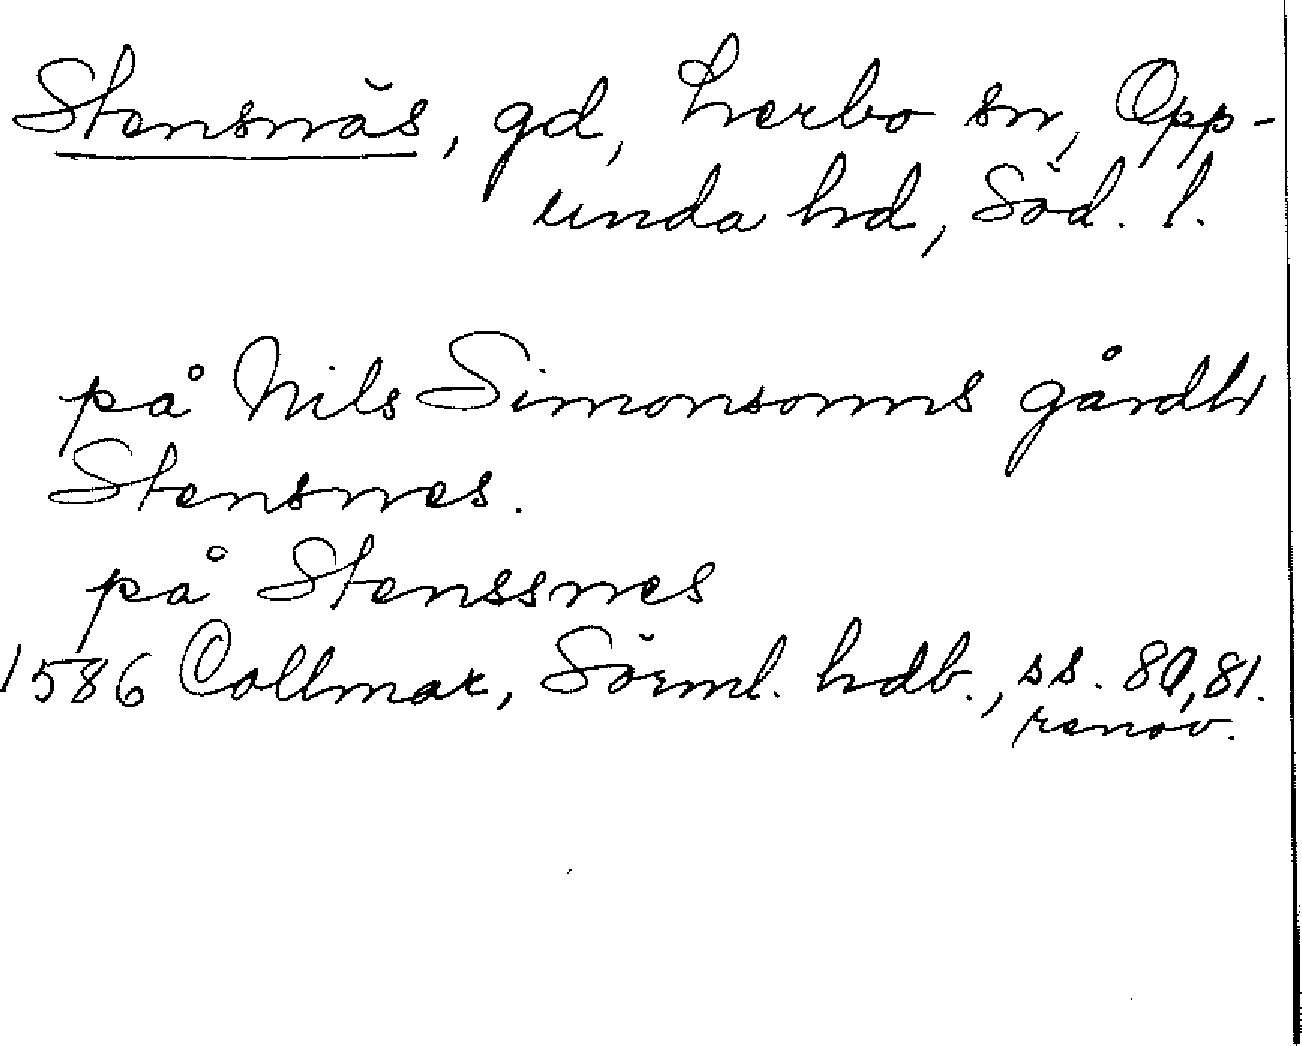 Stensnäs, gd, Lerbo sn, Opp-
unda hd, Söd. l.
på Nils Simonsonns gårdh
Stensnes.
på Stenssnes
1586 Collmar, Sörml. hdb., ss. 80, 81.
renov.